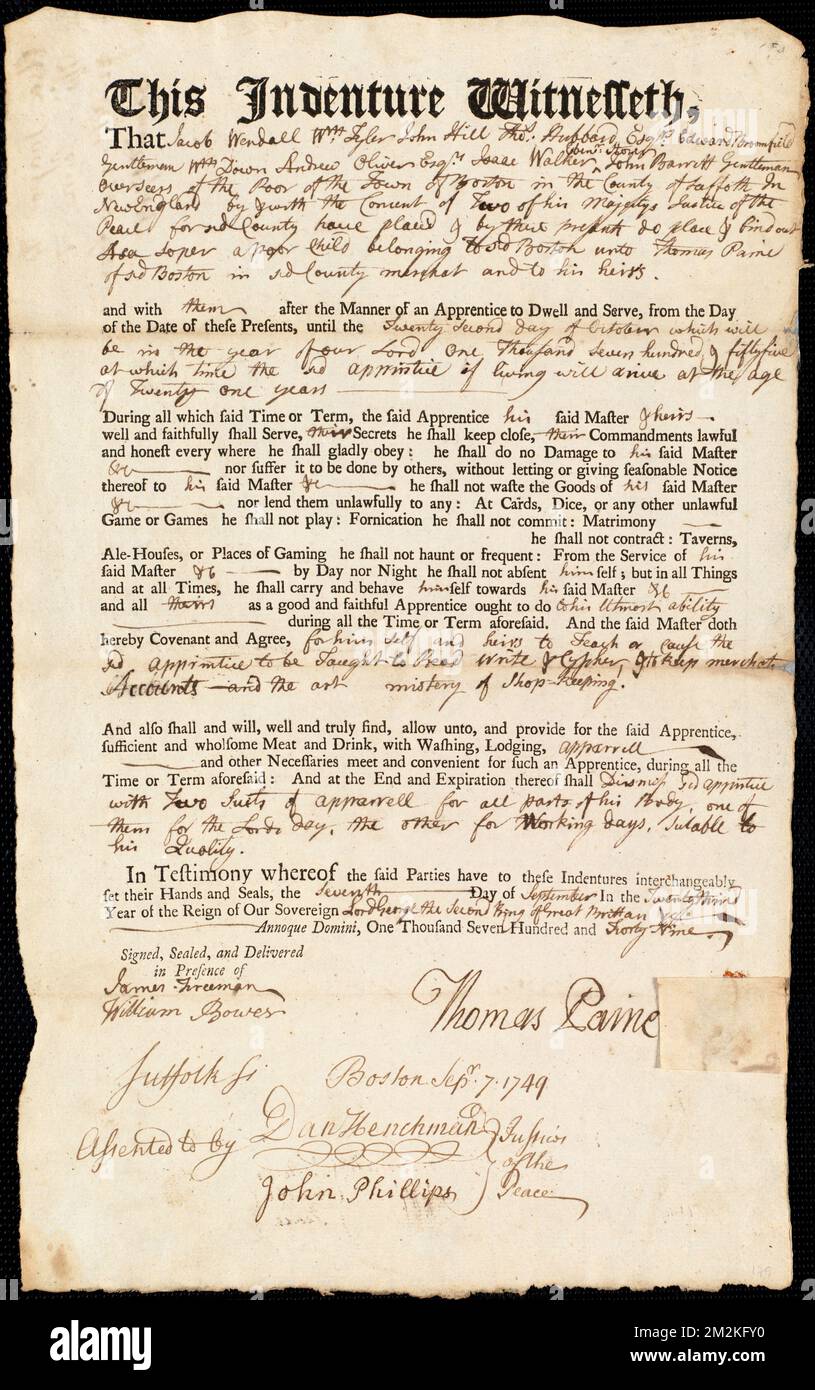 This Indenture Witnesseth,
That Jacob Wendall Wm Tyler John Hill Thos. Hubbard Esqrs. Edward Bromfield
Gentlemen Wm Down Andrew Oliver Esqrs. Isaac Walker John Barrett Gentleman
Overseers of the Poor of the Town of Boston in the County of Suffolk In
New England by & with the Consent of Two of his Majestys Justice of the
Peace for sd County have placed & by these present do place & bind out
Asa Soper a poor Child belonging to sd Boston unto Thomas Paine
of sd Boston in sd County merchat and to his heirs.
and with them after the Manner of an Apprentice to Dwell and Serve, from the Day
of the Date of these Presents, until the Twenty Second day of October which will
be in the year of our Lord One Thousand Seven hundred & fiftyfive
at which time the sd apprintice if living will arive at the age
of Twenty one years
During all which said Time or Term, the said Apprentice his said Master & heirs
well and faithfully shall Serve, their Secrets he shall keep close, their Commandments lawful
and honest every where he shall gladly obey: he shall do no Damage to his said Master
&c nor suffer it to be done by others, without letting or giving seasonable Notice
thereof to his said Master &c he shall not waste the Goods of his said Master
&c nor lend them unlawfully to any: At Cards, Dice, or any other unlawful
Game or Games he shall not play: Fornication he shall not commit: Matrimony
he shall not contract: Taverns,
Ale-Houses, or Places of Gaming he shall not haunt or frequent: From the Service of his
said Master &c by Day nor Night he shall not absent himself; but in all Things
and at all Times, he shall carry and behave himself towards his said Master &c
and all theirs as a good and faithful Apprentice ought to do to his Utmost ability
during all the Time or Term aforesaid. And the said Master doth
hereby Covenant and Agree, for him self and heirs to Teach or cause the
sd apprintice to be Taught to Read Write & Cypher, & to keep merchats
Accounts and the art mistery of Shop-Keeping.
And also shall and will, well and truly find, allow unto, and provide for the said Apprentice,
sufficient and wholsome Meat and Drink, with Washing, Lodging, apparrell
and other Necessaries meet and convenient for such an Apprentice, during all the
Time or Term aforesaid: And at the End and Expiration thereof shall Dismiss sd apprintice
with Two Suits of apparrell for all parts of his Body, one of
them for the Lords day, the other for Working days, Sutable to
his Quality.
In Testimony whereof the said Parties have to these Indentures interchangeably
set their Hands and Seals, the Seventh Day of September In the Twenty third
Year of the Reign of Our Sovereign Lord George the Second King of Great Brittan &c
Annoque Domini, One Thousand Seven Hundred and Forty Nine.
Signed, Sealed, and Delivered
in Presence of
James Freeman
William Bower
Thomas Paine
Suffolk ss Boston Sepr. 7. 1749
Assented to by Dan Henchman Justices
of the
John Phillips Peace
alamy
Image ID: 2M2KFY0
www.alamy.com